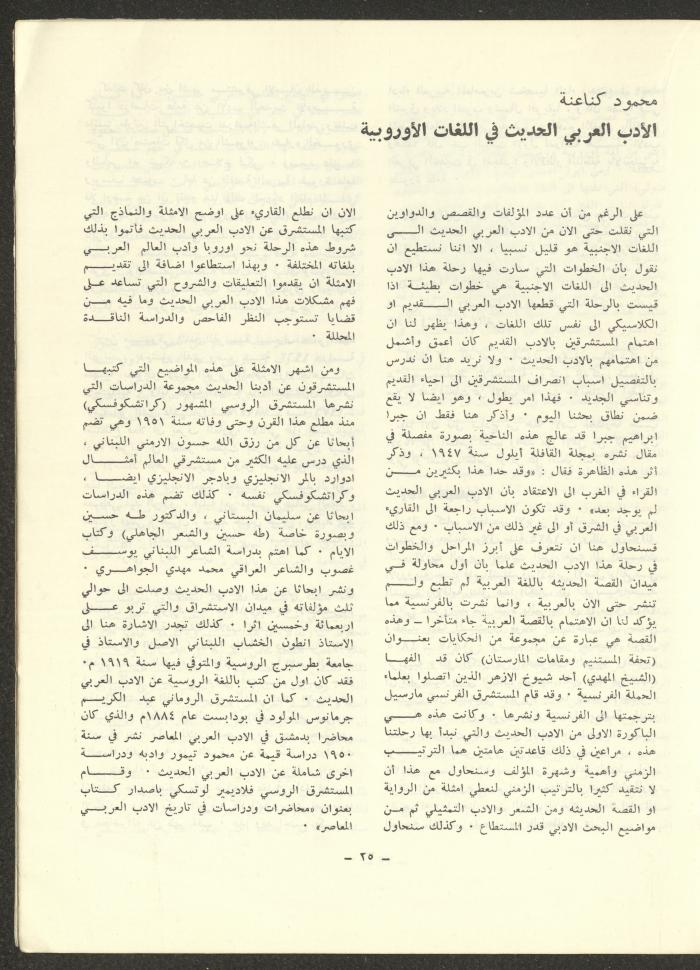 محمود كناعنة
الأدب العربي الحديث في اللغات الأوروبية
على الرغم من أن عدد المؤلفات والقصص والدواوين
التي نقلت حتى الان من الادب العربي الحديث الـــى
اللغات الاجنبية هو قليل نسبيا ، الا اننا نستطيع ان
نقول بأن الخطوات التي سارت فيها رحلة هذا الادب
الحديث الى اللغات الاجنبية هي خطوات بطيئـة اذا
قيست بالرحلة التي قطعها الادب العربي الـــقديم او
الكلاسيكي الى نفس تلك اللغات ، وهذا يظهر لنا ان
اهتمام المستشرقين بالادب القديم كان أعمق وأشمل
من اهتمامهم بالادب الحديث ٠ ولا نريد هنا ان ندرس
بالتفصيل اسباب انصراف المستشرقين الى احياء القديم
وتناسي الجديد ٠ فهذا امر يطول ، وهو ايضا لا يقع
ضمن نطاق بحثنا اليوم ٠ وأذكر هنا فقط ان جبرا
ابراهيم جبرا قد عالج هذه الناحية بصورة مفصلة في
مقال نشره بمجلة القافلة أيلول سنة ١٩٤٧ ، وذكر
أثر هذه الظاهرة فقال : «وقد حدا هذا بكثيرين مــن
القراء في الغرب الى الاعتقاد بأن الادب العربي الحديث
لم يوجد بعد» ٠ وقد تكون الاسباب راجعة الى القاريء
العربي في الشرق أو الى غير ذلك من الاسباب ٠ ومع ذلك
فسنحاول هنا ان نتعرف على أبرز المراحل والخطوات
في رحلة هذا الادب الحديث علما بأن أول محاولة فـي
ميدان القصة الحديثه باللغة العربية لم تطبع ولـــم
تنشر حتى الان بالعربية ، وانما نشرت بالفرنسية مما
يؤكد لنا ان الاهتمام بالقصة العربية جاء متأخرا ـ وهذه
القصة هي عبارة عن مجموعة من الحكايات بعنــوان
(تحفة المستنيم ومقامات المارستان) كان قد الفهـا
(الشيخ المهدي) أحد شيوخ الازهر الذين اتصلوا بعلماء
الحملة الفرنسية ٠ وقد قام المستشرق الفرنسي مارسيل
بترجمتها الى الفرنسية ونشرها ٠ وكانت هذه هـــي
الباكورة الاولى من الادب الحديث والتي نبدأ بها رحلتنا
هذه ، مراعين في ذلك قاعدتين هامتين هما الترتيـــب
الزمني وأهمية وشهرة المؤلف وسنحاول مع هذا أن
لا نتقيد كثيرا بالترتيب الزمني لنعطي امثلة من الرواية
او القصة الحديثه ومن الشعر والادب التمثيلي ثم مــن
مواضيع البحث الادبي قدر المستطاع ٠ وكذلك سنحاول
الان ان نطلع القاريء على اوضح الامثلة والنماذج التي
كتبها المستشرق عن الادب العربي الحديث فأتموا بذلك
شروط هذه الرحلة نحو اوروبا وأدب العالم العربـــي
بلغاته المختلفة ٠ وبهذا استطاعوا اضافة الى تقديـــم
الامثلة ان يقدموا التعليقات والشروح التي تساعد علـى
فهم مشكلات هذا الادب العربي الحديث وما فيه مــن
قضايا تستوجب النظر الفاحص والدراسة الناقــدة
المحللة ٠
ومن اشهر الامثلة على هذه المواضيع التي كتبهــا
المستشرقون عن أدبنا الحديث مجموعة الدراسات التي
نشرها المستشرق الروسي المشهور (كراتشكوفسكي)
منذ مطلع هذا القرن وحتى وفاته سنة ١٩٥١ وهي تضم
أبحاثا عن كل من رزق الله حسون الارمني اللبناني ،
الذي درس عليه الكثير من مستشرقي العالم أمثـــال
ادوارد بالمر الانجليزي وبادجر الانجليزي ايضــا ،
وكراتشكوفسكي نفسه ٠ كذلك تضم هذه الدراسات
ابحاثا عن سليمان البستاني ، والدكتور طـه حسـين
وبصورة خاصة (طه حسين والشعر الجاهلي) وكتاب
الايام ٠ كما اهتم بدراسة الشاعر اللبناني يوســـف
غصوب والشاعر العراقي محمد مهدي الجواهــري ٠
ونشر ابحاثا عن هذا الادب الحديث وصلت الى حوالي
ثلث مؤلفاته في ميدان الاستشراق والتي تربو عـــلى
اربعمائة وخمسين اثرا ٠ كذلك تجدر الاشارة هنا الى
الاستاذ انطون الخشاب اللبناني الاصل والاستاذ في
جامعة بطرسبرج الروسية والمتوفي فيها سنة ١٩١٩ م٠
فقد كان اول من كتب باللغة الروسية عن الادب العربي
الحديث ٠ كما ان المستشرق الروماني عبد الكريــم
جرمانوس المولود في بودابست عام ١٨٨٤م والذي كان
محاضرا بدمشق في الادب العربي المعاصر نشر في سنة
١٩٥٠ دراسة قيمة عن محمود تيمور وادبه ودراســة
اخرى شاملة عن الادب العربي الحديث ٠ وقـــام
المستشرق الروسي فلاديمير لوتسكي باصدار كــتاب
بعنوان «محاضرات ودراسات في تاريخ الادب العربــي
المعاصر» ٠
ـ ٢٥ ـ